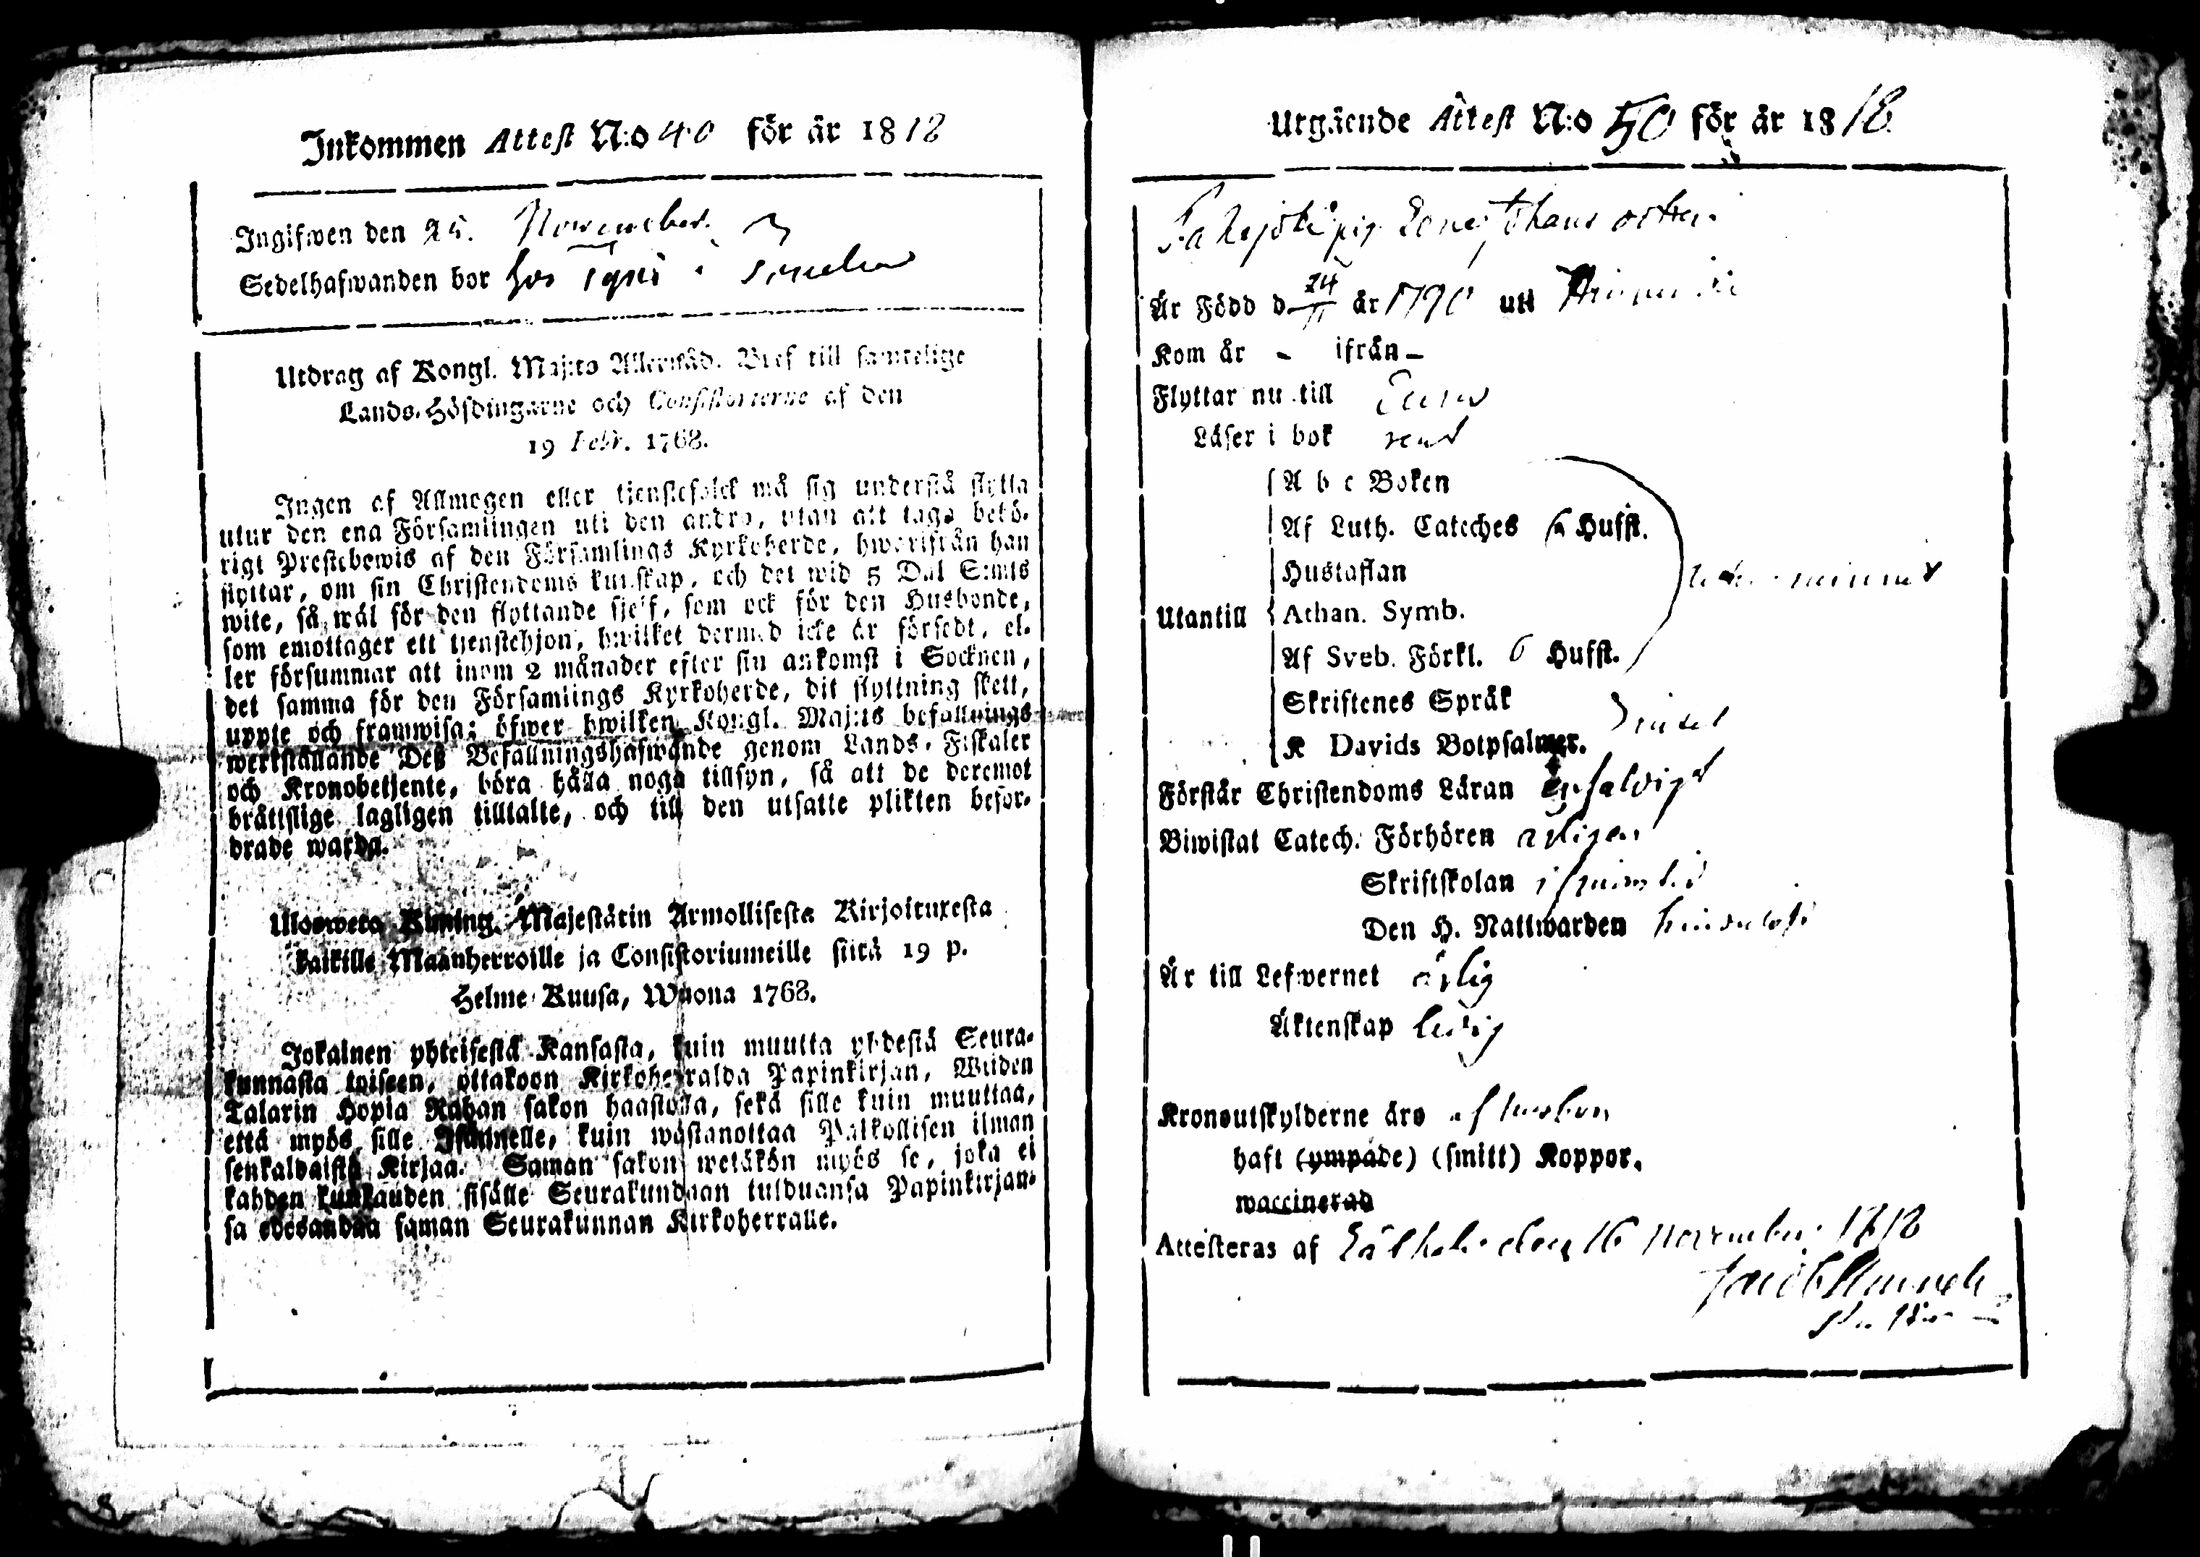 Inkommen Attest N:o 40 för år 1818
Ingifwen den 25. November
Sedelhafwanden bor hos i
Utdrag af Kongl. Maj:ts Allernåd. Bref till samtelige
Lands-Höfdingarne och Consistorierne af den
19 Febr. 1768.
Ingen af Allmogen eller tjenstefolck må sig understå flytta
utur den ena Församlingen uti den andra, utan att taga behö-
rigt Prestebewis af den Församlings Kyrkoherde, hwarifrån han
flyttar, om sin Christendoms kunskap, och det wid 5 Dal S:mts
wite, så wäl för den flyttande sjelf, som ock för den Husbonde,
som emottager ett tjenstehjon, hwilket dermed icke är försedt, el-
ler försummar att inom 2 månader efter sin ankomst i Socknen,
det samma för den Församlings Kyrkoherde, dit flyttning skett,
uppte och framwisa; öfwer hwilken Kongl. Maj:ts befallnings
werkställande Deß Befallningshafwande genom Lands-Fiskaler
och Kronobetjente, böra hålla noga tillsyn, så att de deremot
bråttslige lagligen tilltalte, och till den utsatte plikten befor-
drade warda.
Ulosweto Kuning. Majestätin Armollisesta Kirjoituxesta
kaikille Maanherroille ja Consistoriumeille siitä 19 p.
Helme-Kuusa, Wuona 1768.
Jokainen yhteisestä Kansasta, kuin muutta yhdestä Seura-
kunnasta toiseen, ottakoon Kirkoherralda Papinkirjan, Wiiden
Talarin Hopia Rahan sakon haastolla, sekä sille kuin muuttaa,
että myös sille Isännelle, kuin wastanottaa Palkollisen ilman
senkaldaista Kirjaa. Saman sakon wetäkön myös se, joka ei
kahden kuukauden sisälle Seurakundaan tulduansa Papinkirjan-
sa edesandaa saman Seurakunnan Kirkoherralle.
Utgående Attest N:o 50 för år 1818
Är Född d 24/11 år 1790 uti
Kom år - ifrån -
Flyttar nu till
Läser i bok rent
A b c Boken
Af Luth. Cateches 6 Hufst.
Hustaflan
Utantill Athan. Symb.
Af Sveb. Förkl. 6 Hufst.
Skriftenes Språk
K Davids Botpsalmer.
Förstår Christendoms Läran enfaldigt
Biwistat Catech. Förhören årligen
Skriftskolan
Den H. Nattwarden
Är till Lefwernet ärlig
Äktenskap ledig
Kronoutskylderne äro af husbon
haft (ympade) (smitt) Koppor.
waccinerad
Attesteras af den 16 November 1818
Jacob